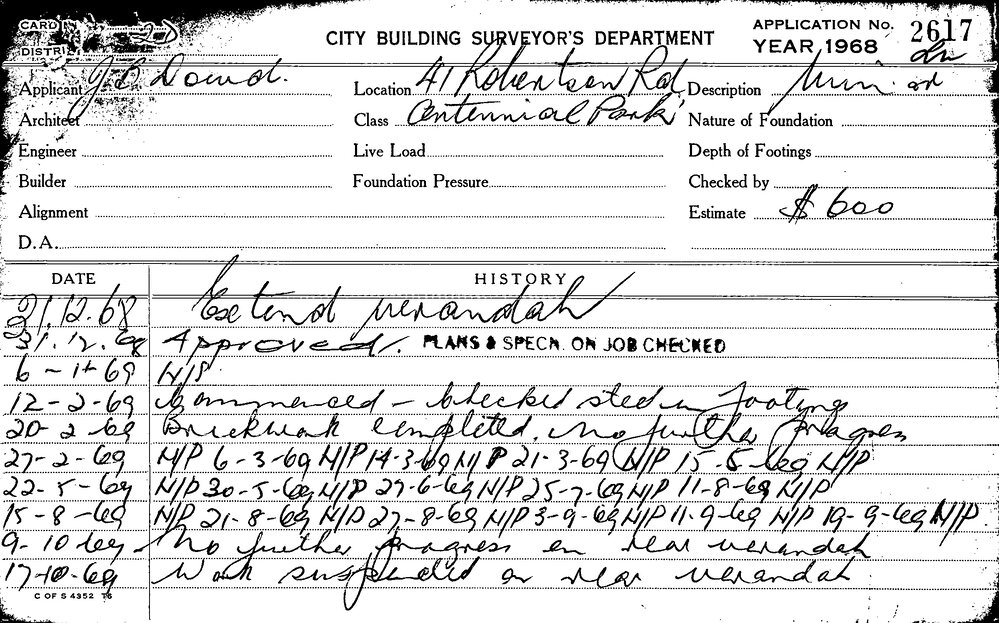 CARD
DISTRI
CITY BUILDING SURVEYOR'S DEPARTMENT
APPLICATION No. 2617
YEAR, 1968
Applicant J. Dowd.
Location 41 Robertson Rd
Description
Architect
Class Centennial Park
Nature of Foundation
Engineer
Live Load
Depth of Footings
Builder
Foundation Pressure
Checked by
Alignment
Estimate $ 600
D.A.
DATE HISTORY
31.12.68 Extend verandah
31.12.68 Approved. PLANS & SPECN. ON JOB CHECKED
6-1-69 N/S
12-2-69 Commenced - checked steel in footings
20-2-69 Brickwork completed. No further progress
27-2-69 N/P 6-3-69 N/P 14-3-69 N/P 21-3-69 N/P 15-5-69 N/P
22-5-69 N/P 30-5-69 N/P 27-6-69 N/P 25-7-69 N/P 11-8-69 N/P
15-8-69 N/P 21-8-69 N/P 27-8-69 N/P 3-9-69 N/P 11-9-69 N/P 19-9-69 N/P
9-10-69 - No further progress on rear verandah
17-10-69 Work suspended on rear verandah
C OF S 4352 T6